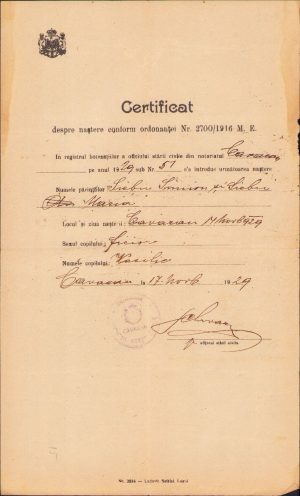 Certificat
despre naștere conform ordonanței Nr. 2700/1916 M. E.
In registrul botezaților a oficiului stării civile din notariatul Cavaran
pe anul 1929 sub Nr. 51 s'a introdus următoarea naștere
Numele părinților Simion și
Maria
Locul și ziua nașterii Cavaran 17 Novb 929
Sexul copilului: fecior
Numele copilului: Vasilie
Cavaran la 17. Novb. 1929
oficiul stării civile
Nr. 2314